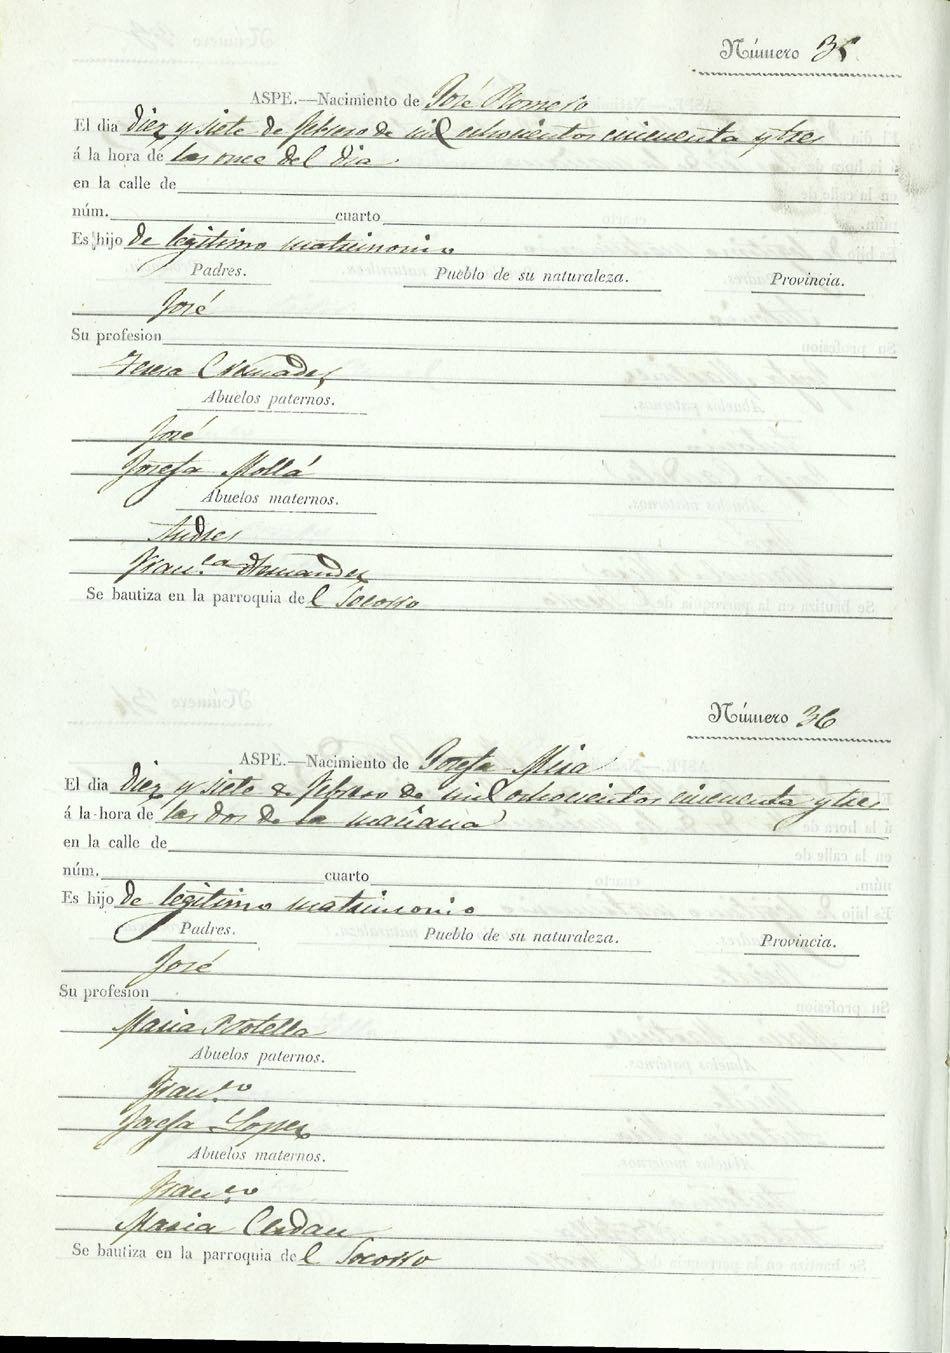 Número 35
ASPE.—Nacimiento de José Romero
El dia diez y siete de febrero de mil ochocientos cincuenta y tres
á la hora de las once del dia.
en la calle de
núm. cuarto
Es hijo de legitimo matrimonio
Padres. Pueblo de su naturaleza. Provincia.
José
Su profesion
Teresa Cremades
Abuelos paternos.
José
Josefa Mollá
Abuelos maternos.
Andres
Fran.ca Hernandez
Se bautiza en la parroquia del Socorro
Número 36
ASPE.—Nacimiento de Josefa Mira
El dia diez y siete de febrero de mil ochocientos cincuenta y tres
á la hora de las dos de la mañana
en la calle de
núm. cuarto
Es hijo de legitimo matrimonio
Padres. Pueblo de su naturaleza. Provincia.
José
Su profesion
Maria Botella
Abuelos paternos.
Fran.co
Josefa Lopez
Abuelos maternos.
Fran.co
Maria Cerdan
Se bautiza en la parroquia del Socorro